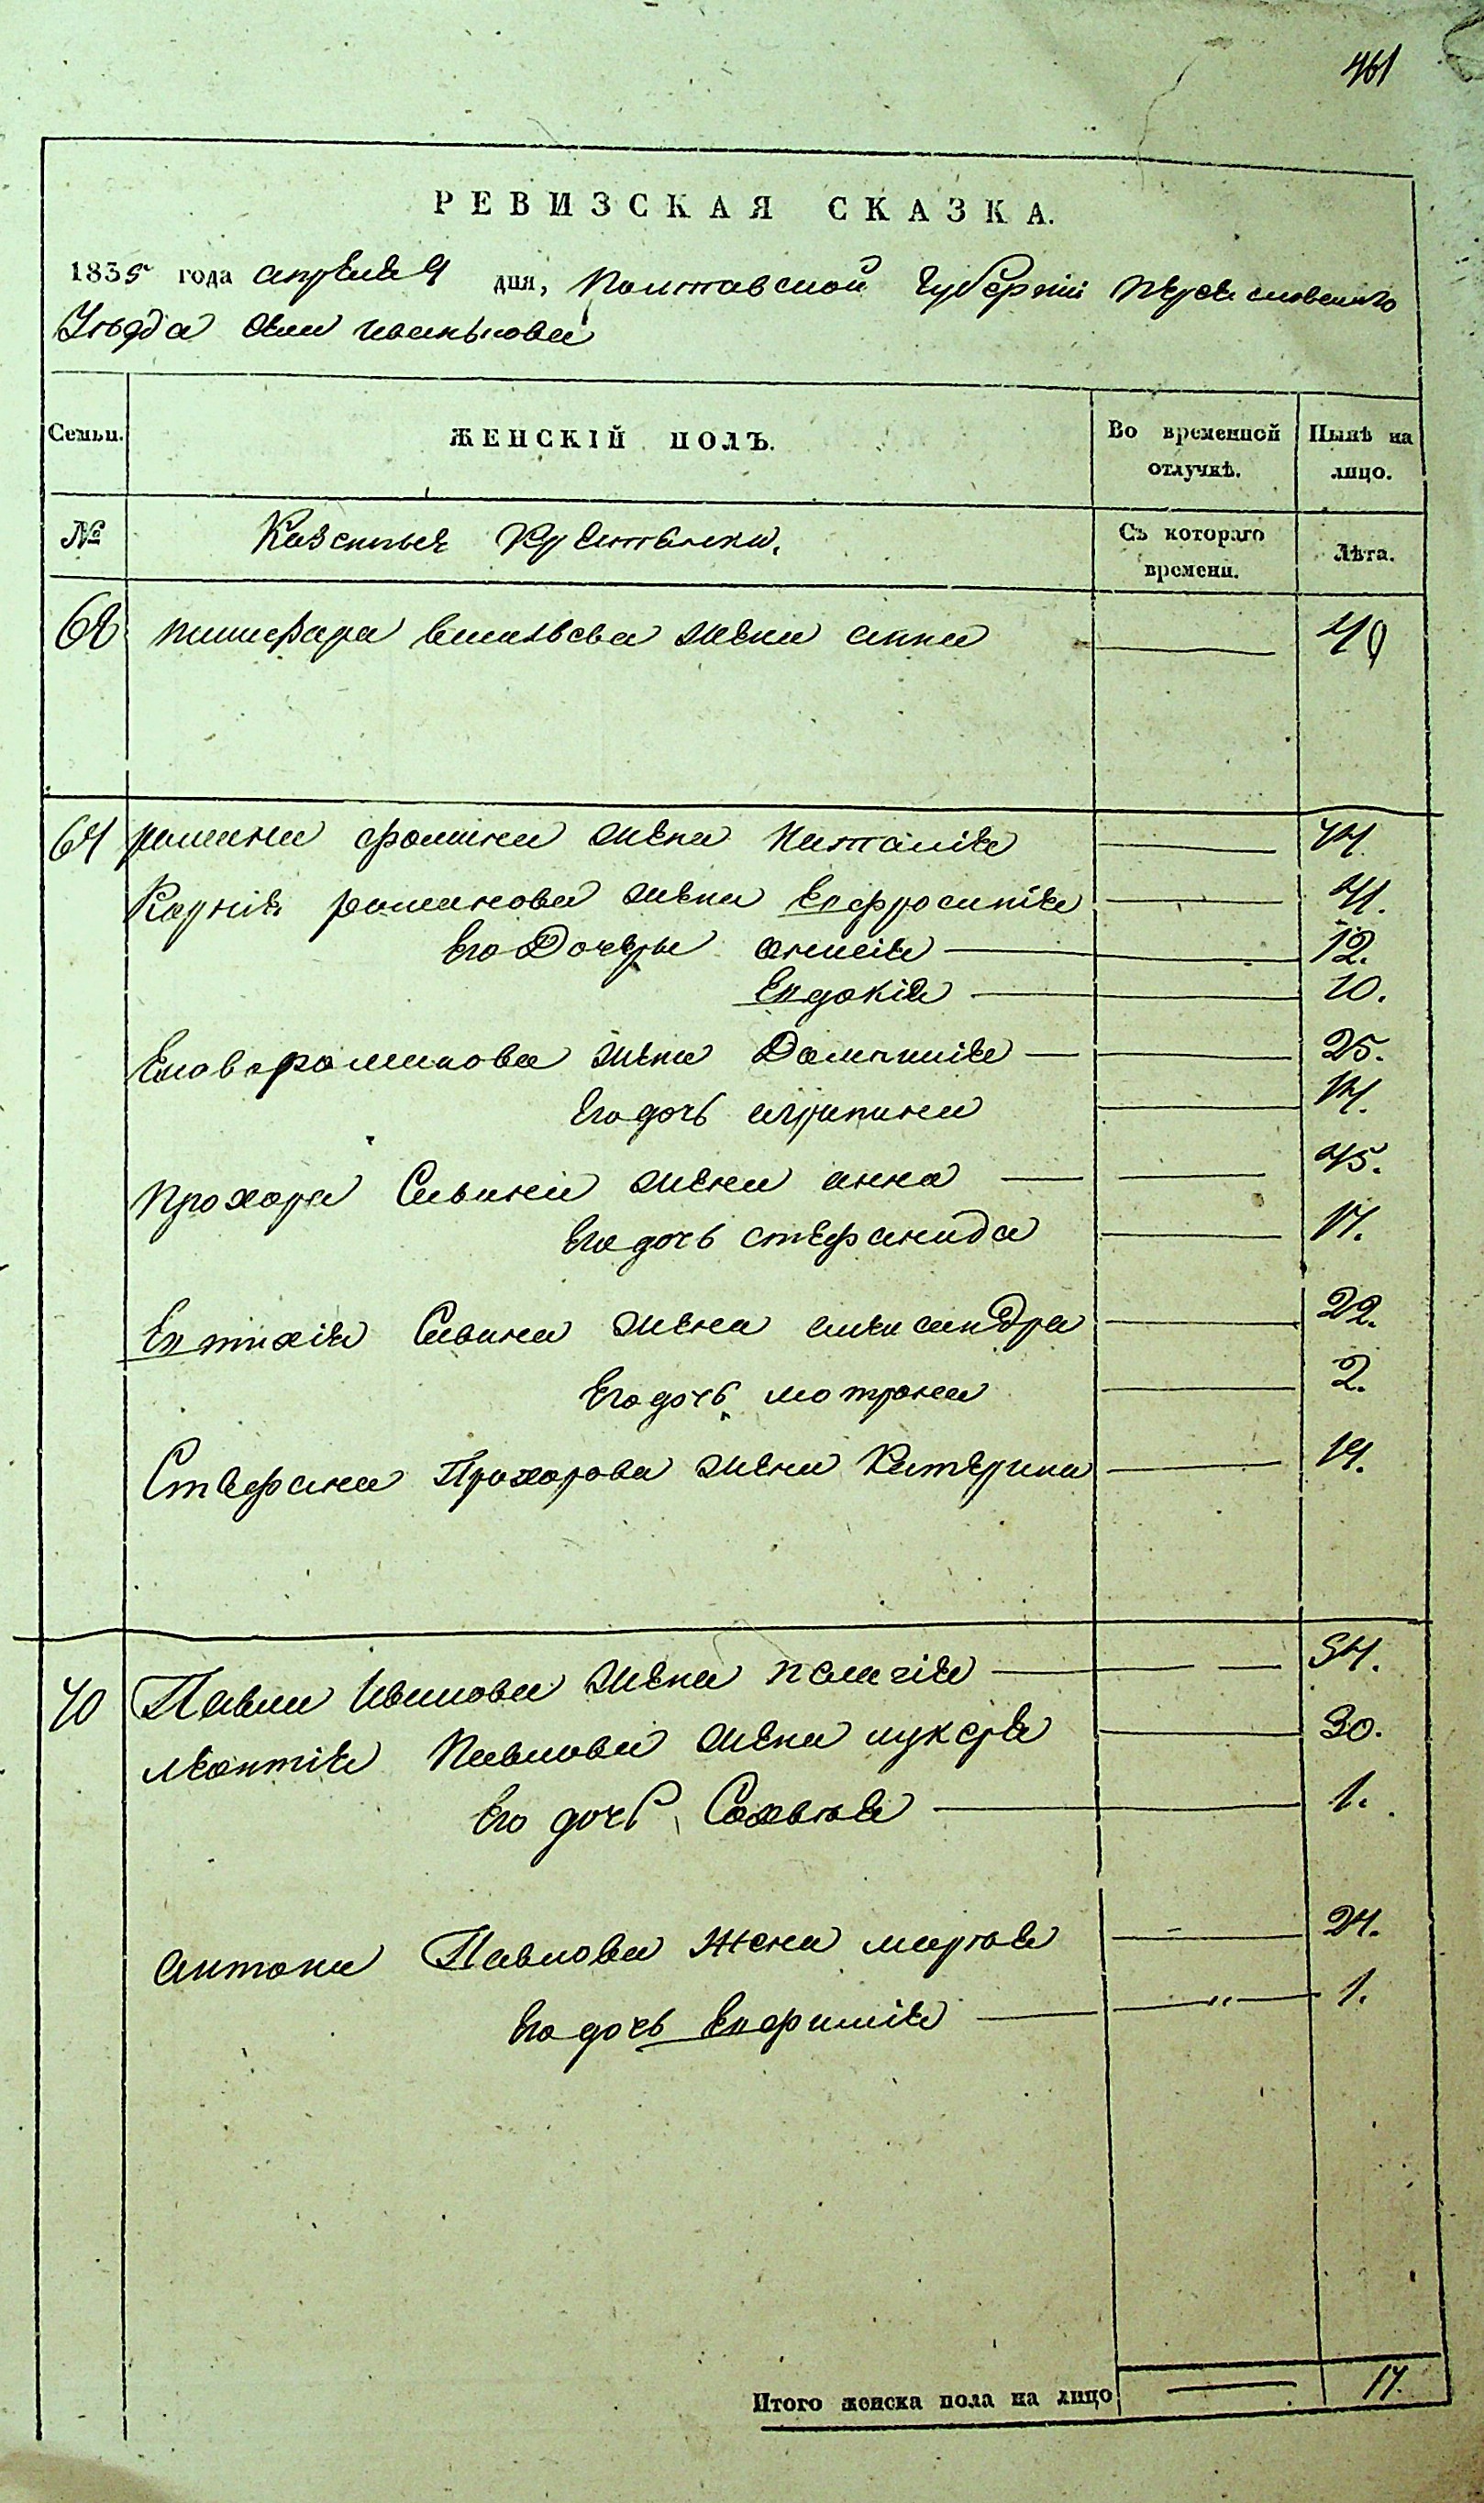 461
РЕВИЗСКАЯ СКАЗКА.
1835 года апреля 9 дня, Полтавской Губернии Переясловского
Уезда села иванькова
Семьи. ЖЕНСКІЙ ПОЛЪ. Во временной отлучкѣ. Нынѣ на лицо.
№ Казенные Крестьянки. Съ котораго времени. Лѣта.
68 никифора жена анна
романа фомина жена Наталія
Карнія романова жена Евфросинія
Его Дочеры анисія 12.
Евдокія 10.
романова жена Домникія 25.
Его дочь агрипина
прохора Савина жена анна 45.
Его дочь стефанида
Евтихія Савина жена александра 22.
Его дочь мотрона 2.
Стефана Прохорова жена Катерина 19.
70 Павла Иванова жена пелагія 54.
леонтія Павлова жена лукеря 30.
Его дочь Соловія 1.
антона Павлова жена марья 24.
Его дочь Евфимія 1.
Итого женска пола на лицо 17.